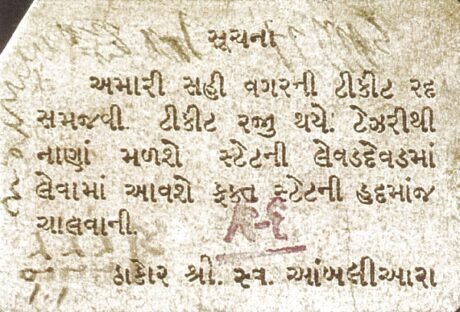 સૂચના
અમારી સહી વગરની ટીકીટ રદ
સમજવી. ટીકીટ રજી થયે. ટ્રેઝરીથી
નાણાં મળશે સ્ટેટની લેવડદેવડમાં
લેવામાં આવશે ફક્ત સ્ટેટની હદમાંજ
ચાલવાની.
ઠાકોર શ્રી. સ્વ. આંબલીઆરા